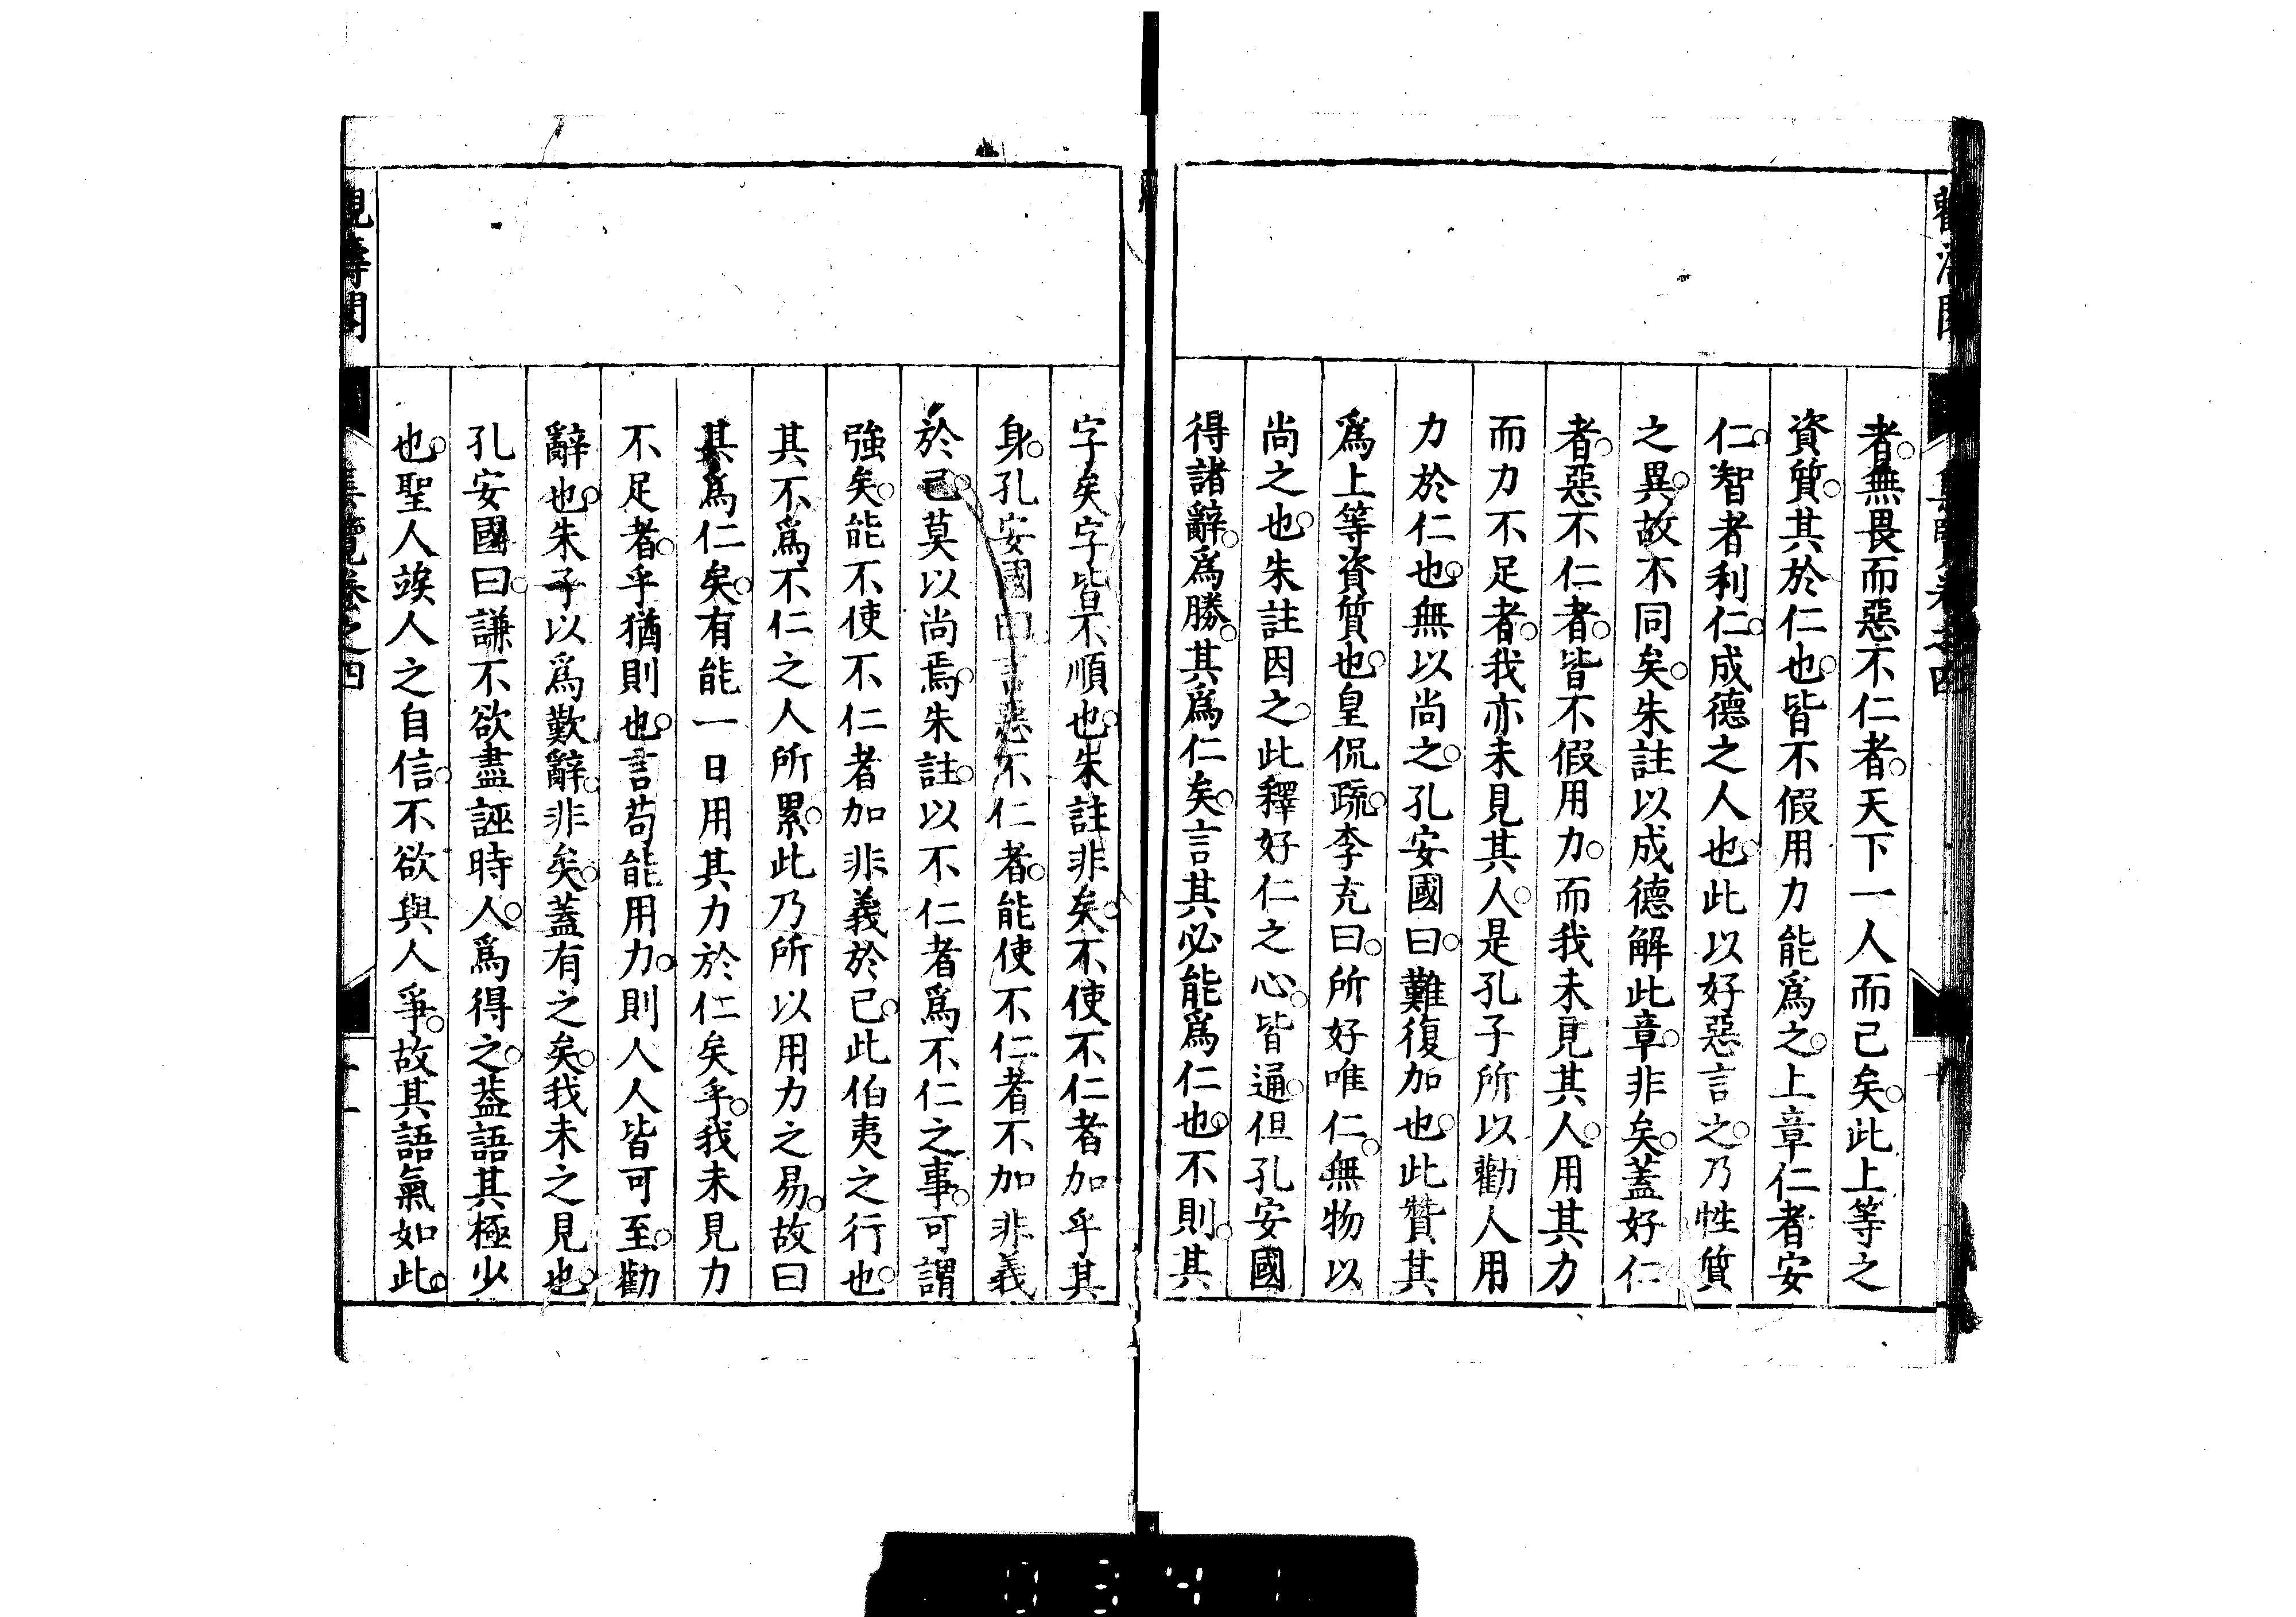 者。無畏而惡不仁者。天下一人而已矣。此上等之
資質。其於仁也。皆不假用力能爲之。上章仁者安
仁。智者利仁。成德之人也。此以好惡言之。乃性質
之異。故不同矣。朱註以成德解此章。非矣。蓋好仁
者。惡不仁者。皆不假用力。而我未見其人。用其力
而力不足者。我亦未見其人。是孔子所以勸人用
力於仁也。無以尚之。孔安國曰。難復加也。此贊其
爲上等資質也。皇侃疏。李充曰。所好唯仁。無物以
尚之也。朱註因之。此釋好仁之心。皆通。但孔安國
得諸辭。爲勝。其爲仁矣。言其必能爲仁也。不則。其
字矣字皆不順也。朱註非矣。不使不仁者加乎其
身。孔安國曰言惡不仁者。能使不仁者不加非義
於己。莫以尚焉。朱註。以不仁者爲不仁之事。可謂
強矣。能不使不仁者加非義於己。此伯夷之行也。
其不爲不仁之人所累。此乃所以用力之易。故曰
其爲仁矣。有能一日用其力於仁矣乎。我未見力
不足者。乎猶則也。言苟能用力。則人人皆可至。勸
辭也。朱子以爲歎辭。非矣。蓋有之矣。我未之見也。
孔安國曰。謙不欲盡誣時人。爲得之。蓋語其極少
也。聖人竢人之自信。不欲與人爭。故其語氣如此。
觀濤閣
卷之四